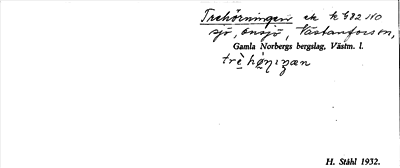 Trehörningen ek k 682 110
sjö, önsjö, Västanforsen,
Gamla Norbergs bergslag, Västm. l.
H. Ståhl 1932.